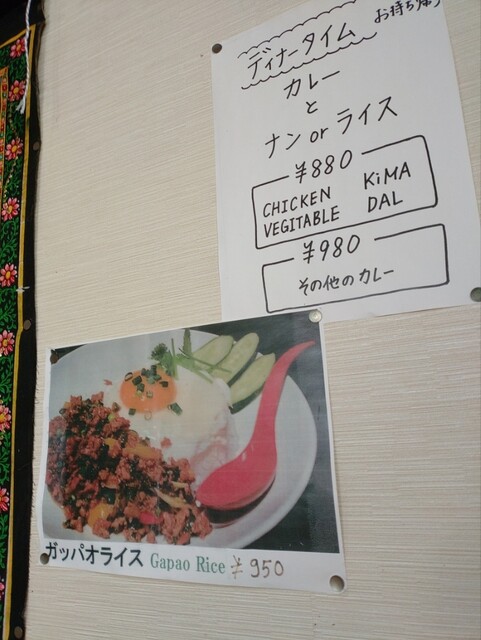 ディナータイム
お持ち帰り
カレー
と
ナン or ライス
¥880
CHICKEN KiMA
VEGITABLE DAL
¥980
その他のカレー
ガッパオライス Gapao Rice ¥950